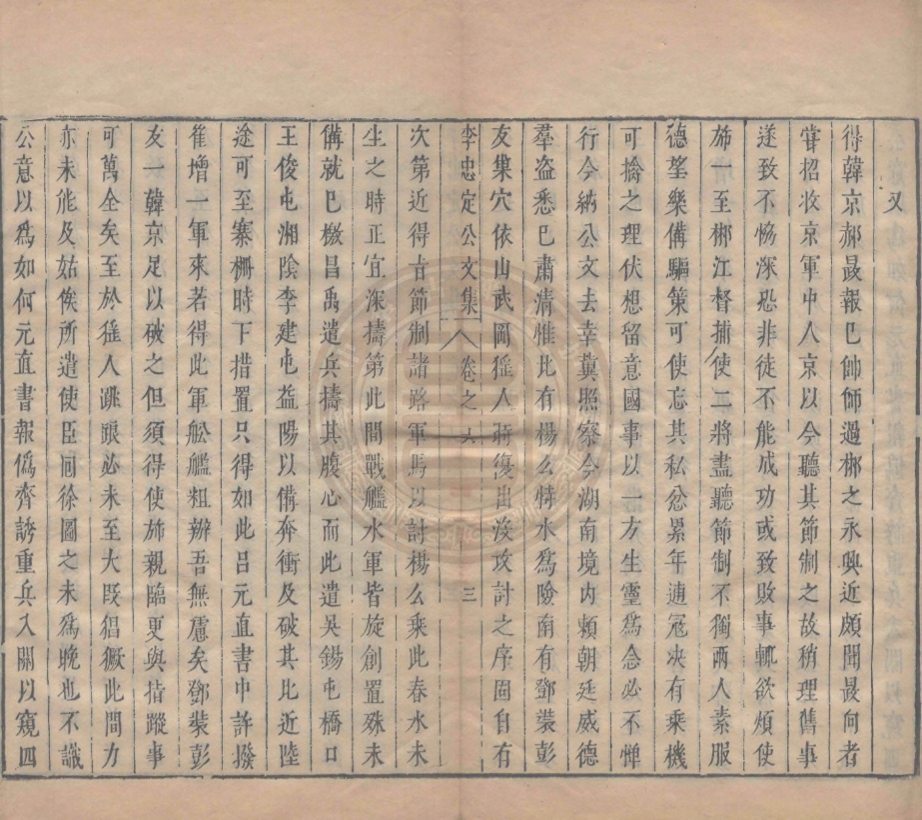 又
得韓京郝晸報已帥師過郴之永興近頗聞晸向者
嘗招收京軍中人京以今聽其節制之故稍理舊事
遂致不恊深恐非徒不能成功或致敗事輒欲煩使
斾一至郴江督捕使二將盡聽節制不獨兩人素服
德望樂備驅策可使忘其私忿累年逋寇决有乘機
可擒之理伏想留意國事以一方生靈爲念必不憚
行今納公文去幸冀照察今湖南境内頼朝廷威德
羣盗悉已肅清惟此有楊么恃水爲險南有鄧裝彭
友巢穴依山武岡猺人時復出没攻討之序固自有
李忠定公文集 卷之六 三
次第近得旨節制諸路軍馬以討楊么乘此春水未
生之時正宜深擣第此間戰艦水軍皆旋創置殊未
備就已檄昌禹遣兵擣其腹心而此遣吳錫屯橋口
王俊屯湘陰李建屯益陽以備奔衝及破其比近陸
途可至寨柵時下措置只得如此吕元直書中許撥
崔增一軍來若得此軍舩艦粗辦吾無慮矣鄧裝彭
友一韓京足以破之但須得使斾親臨更與指蹤事
可萬全矣至於猺人跳踉必未至大叚猖獗此間力
亦未能及姑俟所遣使臣囘徐圖之未爲晚也不識
公意以爲如何元直書報僞齊誘重兵入關以窺四